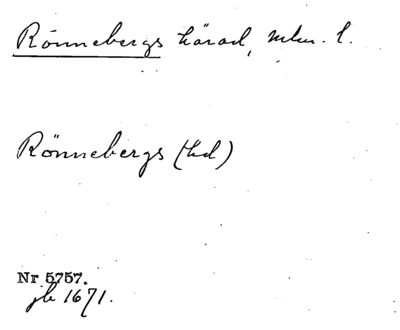 Rönnebergs härad, mlm. l.
Rönnebergs (hd)
Nr 5757.
jb 1671.